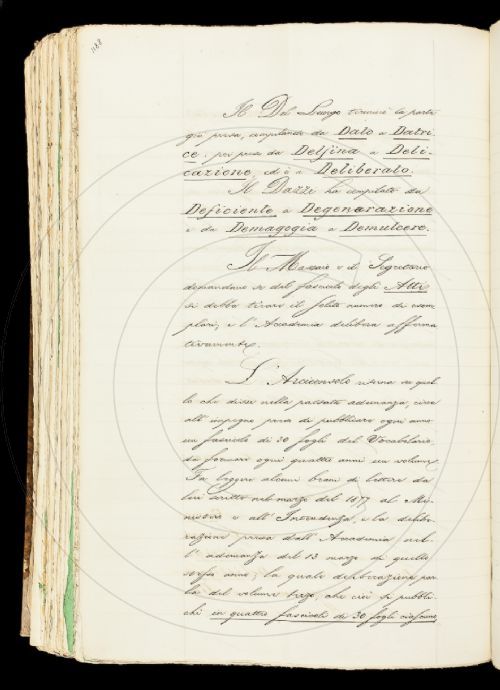 1188
Il Del Lungo terminò la parte
già presa, compilando da Dato a Datri-
ce; poi prese da Delfina a Deli-
cazione, ed è a Deliberato.
Il Dazzi ha compilato da
Deficiente a Degenerazione
e da Demagogia a Demulcere.
Il Massaio e il Segretario
domandano se del fascicolo degli Atti
si debba tirare il solito numero di esem-
plari, e l'Accademia delibera afferma
tivamente.
L'Arciconsolo ritorna su quel
lo che disse nella passata adunanza, circa
all'impegno preso di pubblicare ogni anno
un fascicolo di 30 fogli del Vocabolario,
da formare ogni quattro anni un volume.
Fa leggere alcuni brani di lettere da
lui scritte nel marzo del 1877 al Mi-
nistero e all'Intendenza, e la delibe-
razione presa dall'Accademia nel-
l'adunanza del 13 marzo di quello
stesso anno; la quale deliberazione par
la del volume terzo, che cioè si pubbli-
chi in quattro fascicoli di 30 fogli ciascuno